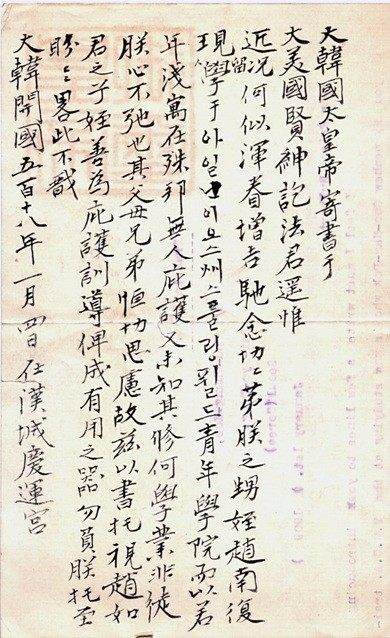 大韓國太皇帝寄書于
大美國賢紳訖法君遥惟
近況何似渾眷增吉馳念切々第朕之甥姪趙南復
現留學于아일닉이오스州스풀링필드青年學院而以若
年淺寓在殊邦無人庇護又未知其修何學業非徒
朕心不弛也其父母兄弟恒切思慮故玆以書托視趙如
君之子姪善爲庇護訓導俾成有用之器勿負朕托至
盼々畧此不戩
大韓開國五百十八年一月四日在漢城慶運宮